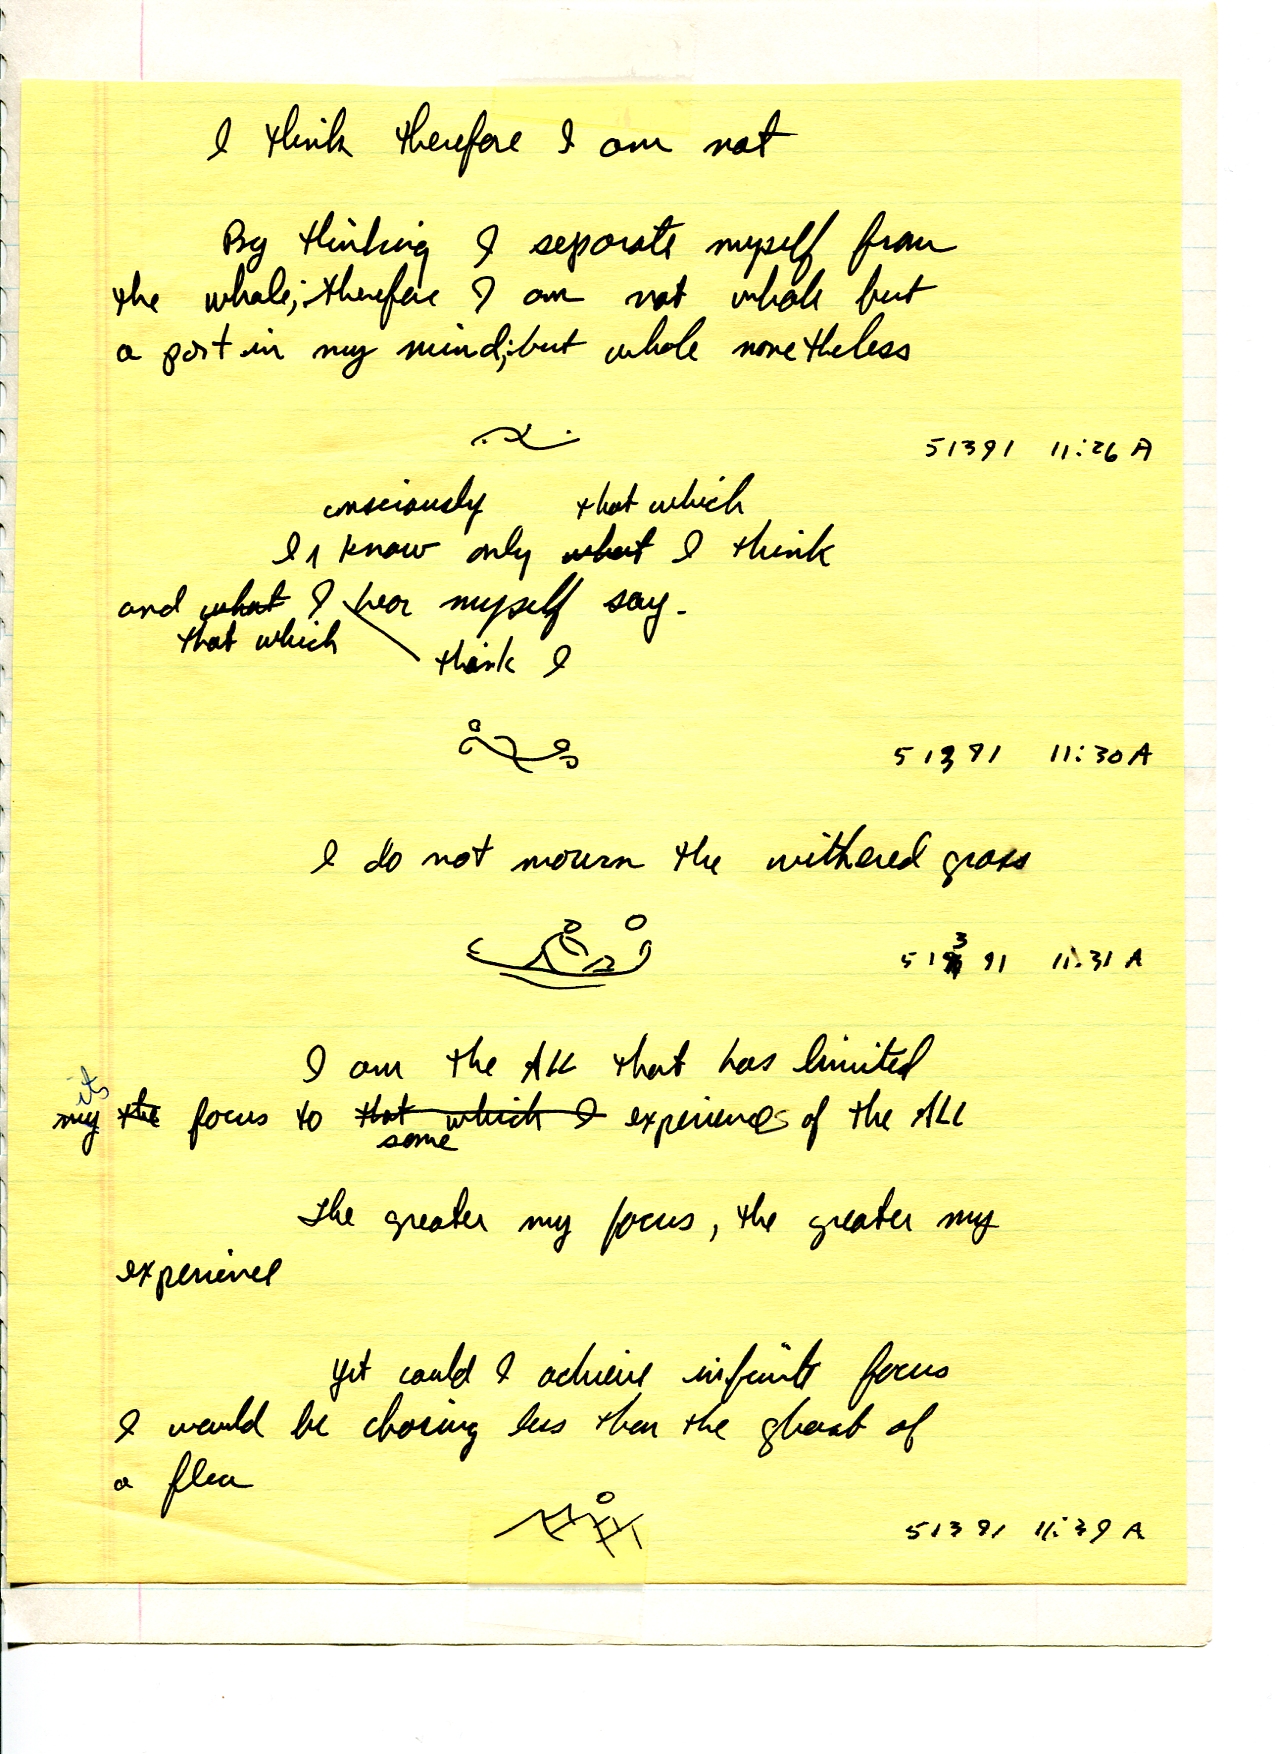 I think therefore I am not
By thinking I separate myself from
the whole; therefore I am not whole but
a part in my mind; but whole nonetheless
51391 11:26 A
consciously that which
I ^ know only what I think
and what I hear myself say.
that which
think I
51391 11:30 A
I do not mourn the withered grass
3
51 91 11:31 A
I am the ALL that has limited
its
my the focus to that which I experiences of the ALL
some
The greater my focus, the greater my
experience
Yet could I achieve infinite focus
I would be chosing less than the ghost of
a flea
51391 11:39 A